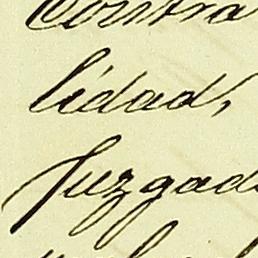 Contra
lidad,
Juzgad